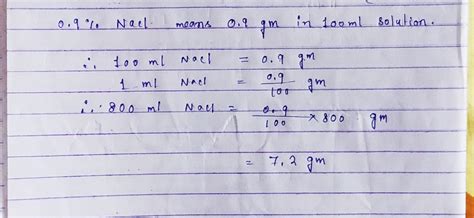 0.9% Nacl means 0.9 gm in 100ml solution.
∴ 100 ml Nacl = 0.9 gm
1 ml Nacl = 0.9/100 gm
∴ 800 ml Nacl = 0.9/100 × 800 gm
= 7.2 gm